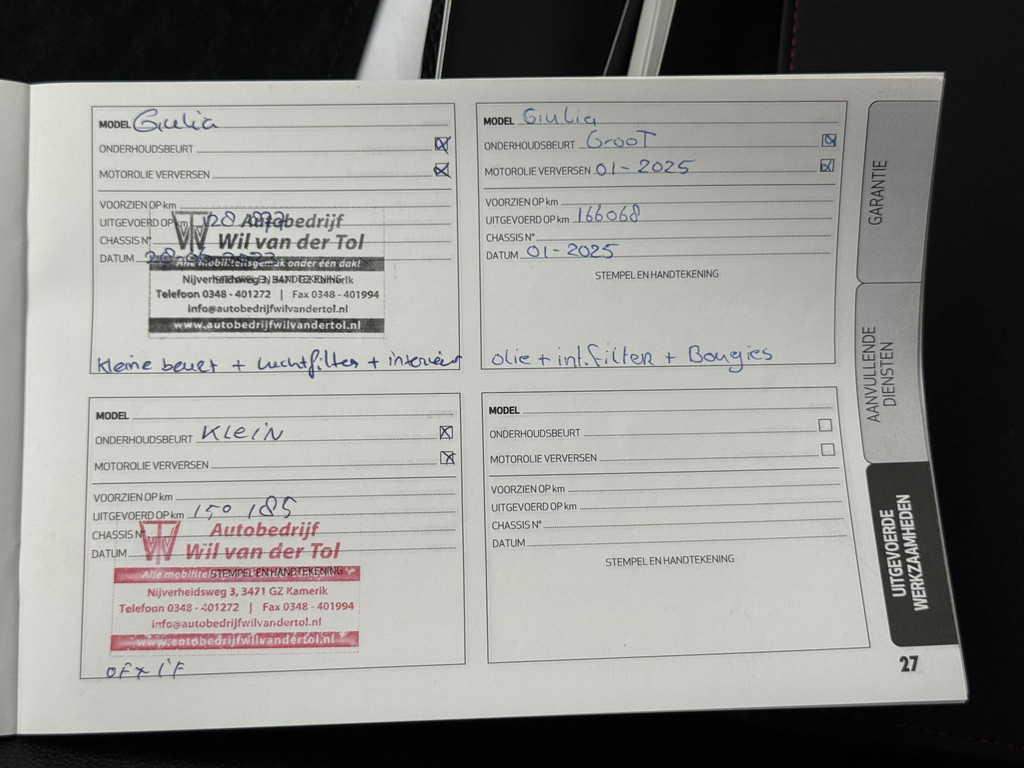 MODEL Giulia
ONDERHOUDSBEURT
MOTOROLIE VERVERSEN
VOORZIEN OP km
UITGEVOERD OP km
CHASSIS N°
DATUM
STEMPEL EN HANDTEKENING
Autobedrijf
Wil van der Tol
Alle mobiliteitsgemak onder één dak!
Nijverheidsweg 3, 3471 GZ Kamerik
Telefoon 0348 - 401272 | Fax 0348 - 401994
info@autobedrijfwilvandertol.nl
www.autobedrijfwilvandertol.nl
kleine beurt + luchtfilter + interieur
MODEL Giulia
ONDERHOUDSBEURT GrooT
MOTOROLIE VERVERSEN 01-2025
VOORZIEN OP km
UITGEVOERD OP km 166068
CHASSIS N°
DATUM 01-2025
STEMPEL EN HANDTEKENING
olie + int.filter + Bougies
MODEL
ONDERHOUDSBEURT KLEIN
MOTOROLIE VERVERSEN
VOORZIEN OP km
UITGEVOERD OP km 150185
CHASSIS N°
DATUM
STEMPEL EN HANDTEKENING
Autobedrijf
Wil van der Tol
Alle
Nijverheidsweg 3, 3471 GZ Kamerik
Telefoon 0348 - 401272 | Fax 0348 - 401994
info@autobedrijfwilvandertol.nl
www.autobedrijfwilvandertol.nl
OF + I'F
MODEL
ONDERHOUDSBEURT
MOTOROLIE VERVERSEN
VOORZIEN OP km
UITGEVOERD OP km
CHASSIS N°
DATUM
STEMPEL EN HANDTEKENING
GARANTIE
AANVULLENDE
DIENSTEN
UITGEVOERDE
WERKZAAMHEDEN
27